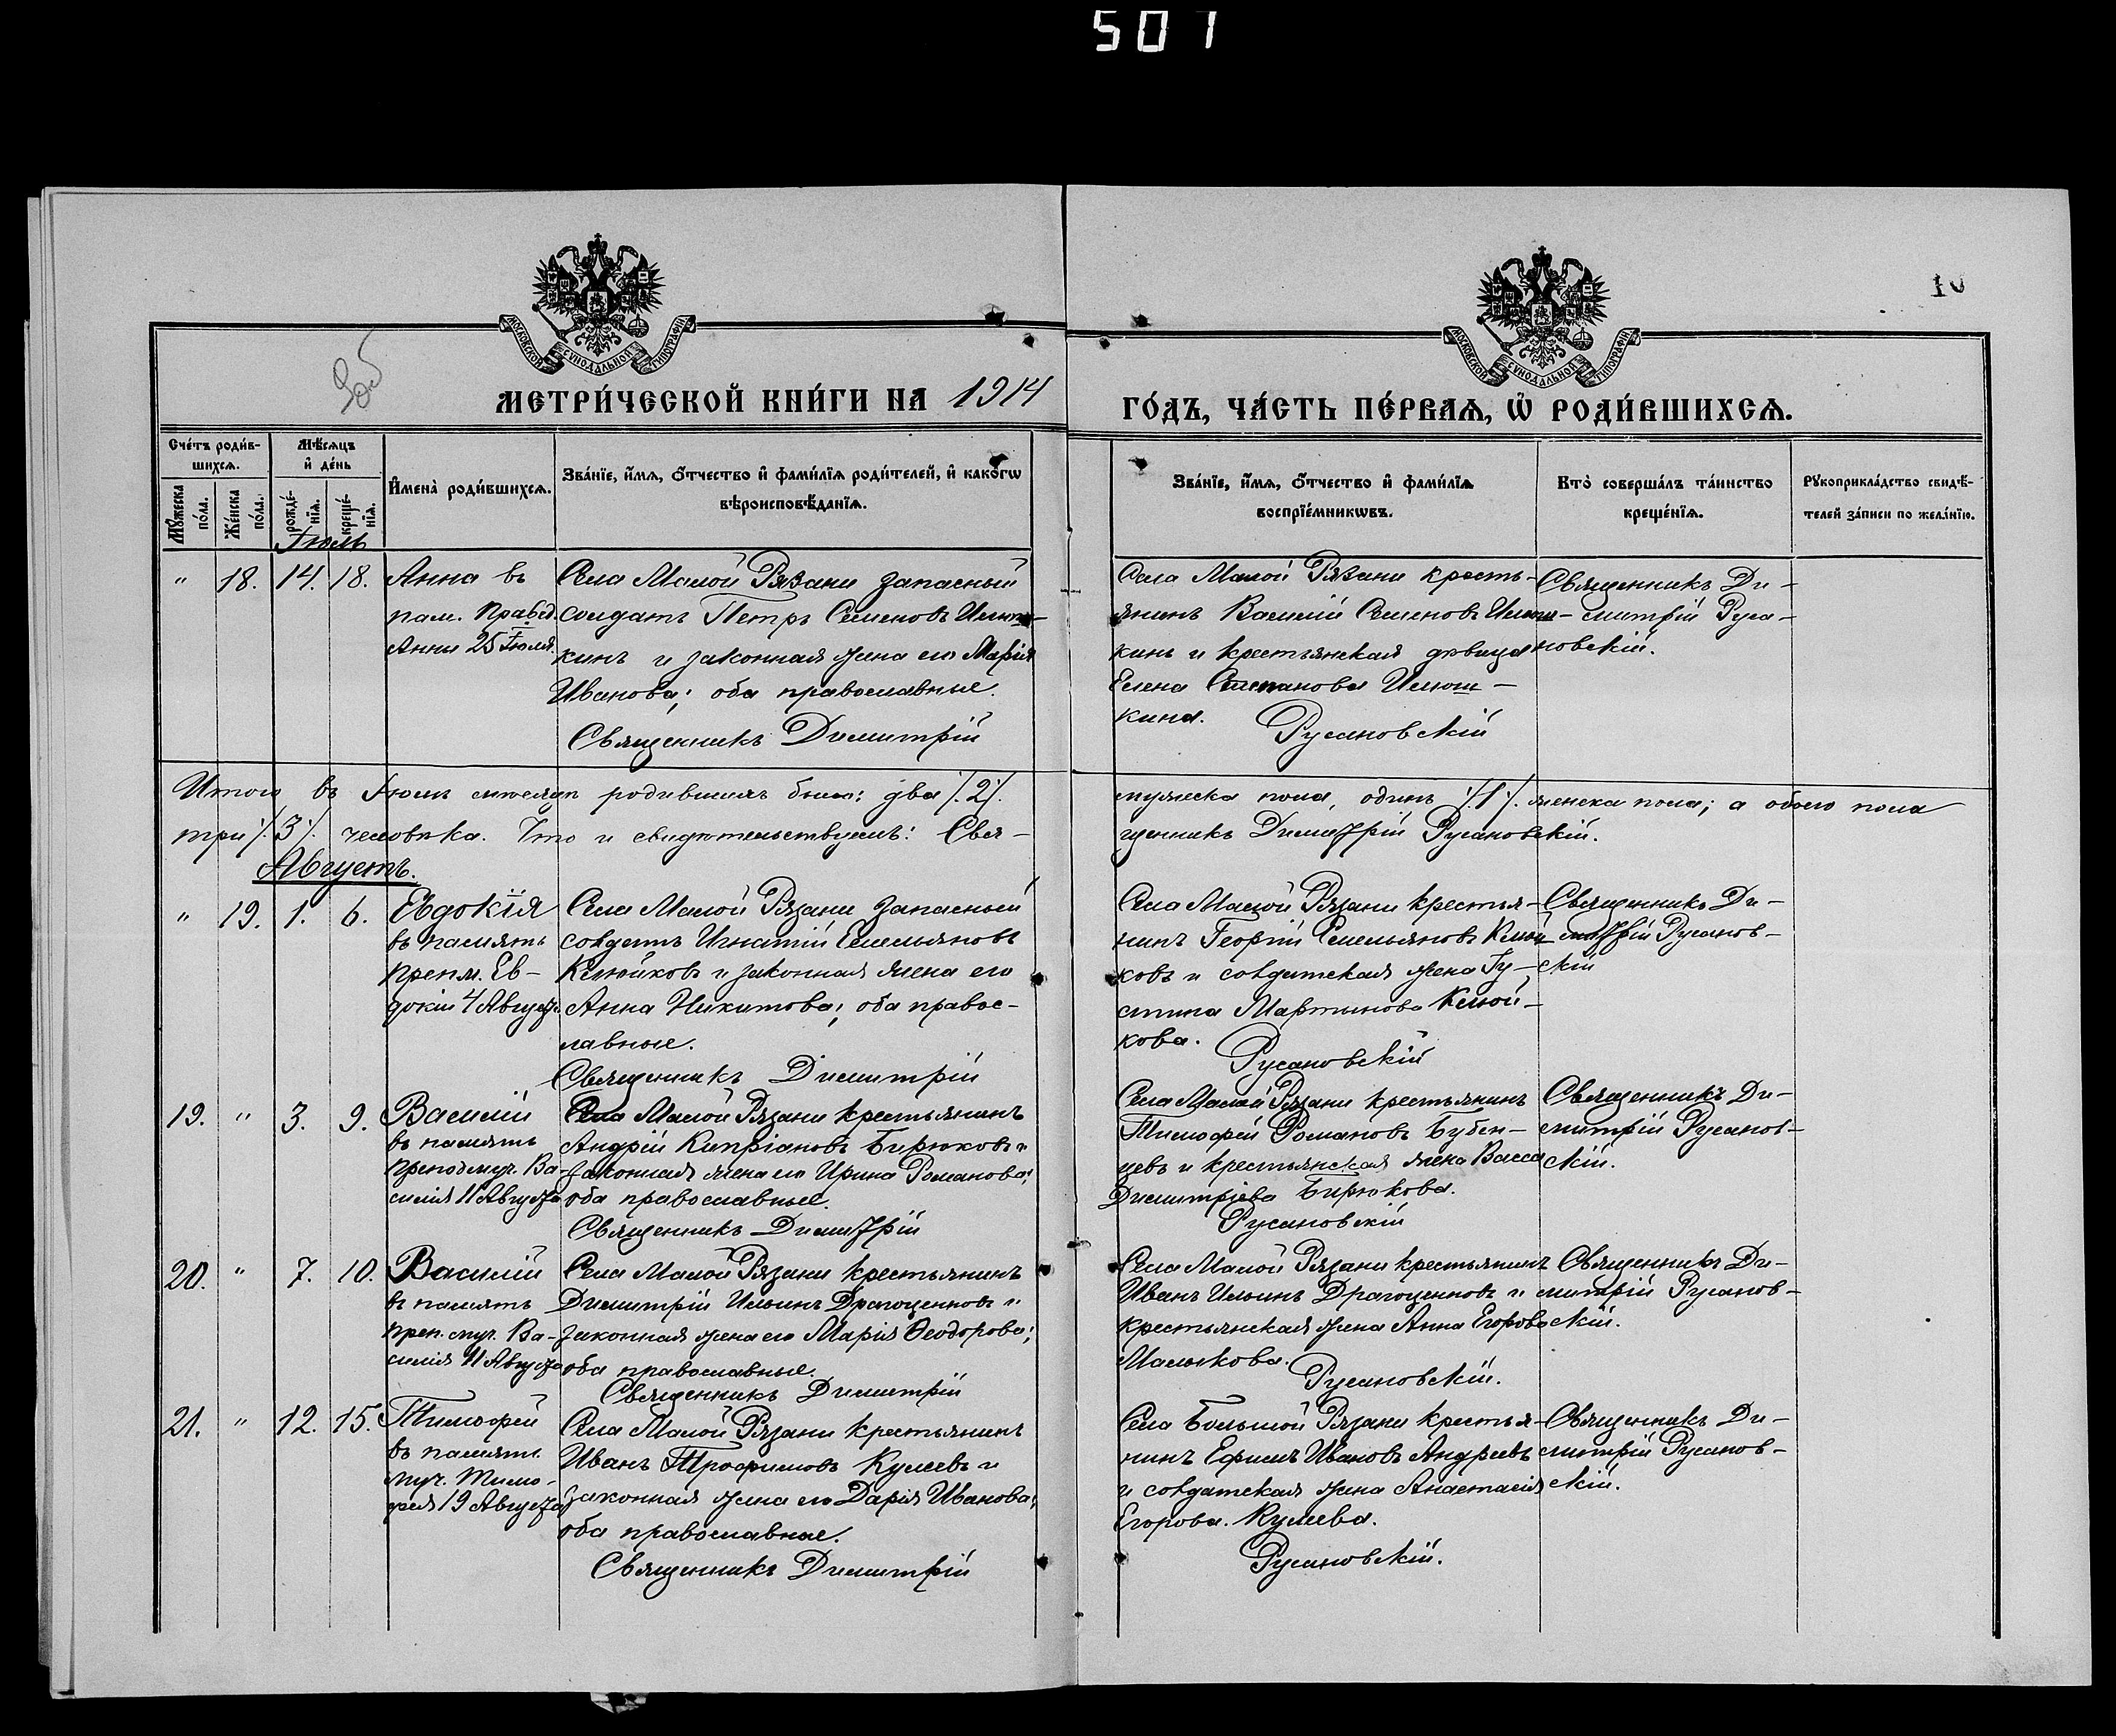 501
10
МОСКОВСКОЙ СУНОДАЛЬНОЙ ТИПОГРАФІИ
МОСКОВСКОЙ СУНОДАЛЬНОЙ ТИПОГРАФІИ
МЕТРИ́ЧЕСКОЙ КНИ́ГИ НА 1914
ГО́ДЪ, ЧА́СТЬ ПЕ́РВАѦ, Ѡ҆ РОДИ́ВШИХСѦ.
Сче́тъ роди́в-
шихсѧ.
Мꙋ́жеска
по́ла.
Же́нска
по́ла.
Мѣ́сѧцъ
и҆ де́нь
рожде́-
нїѧ.
креще́-
нїѧ.
И҆мена̀ роди́вшихсѧ.
Зва́нїе, и҆́мѧ, ѻ҆́тчество и҆ фами́лїѧ роди́телей, и҆ како́гѡ
вѣроисповѣ́данїѧ.
Зва́нїе, и҆́мѧ, ѻ҆́тчество и҆ фами́лїѧ
воспрїе́мникѡвъ.
Кто̀ соверша́лъ та́инство
креще́нїѧ.
Рꙋкоприкла́дство свидѣ́-
телей за́писи по жела́нїю.
Іюль
" 18. 14. 18.
Анна въ
пам. Правед.
Анны 25 Іюля.
Села Малой Рязани запасный
солдатъ Петръ Семеновъ Илюш-
кинъ и законная жена его Марія
Иванова; оба православные.
Священникъ Димитрій
Села Малой Рязани кресть-
янинъ Василій Семеновъ Илюш-
кинъ и крестьянская дѣвица
Елена Степанова Илюш-
кина.
Русановскій
Священникъ Ди-
митрій Руса-
новскій.
Итого въ Іюлѣ мѣсяцѣ родившихъ было: два /.2/.
мужеска пола, одинъ /.1/. женска пола; а обоего пола
три /.3/. человѣка. Что и свидѣтельствуемъ: Свя-
щенникъ Димитрій Русановскій.
Августъ.
" 19. 1. 6.
Евдокія
въ память
препм. Ев-
докіи 4 Августа
Села Малой Рязани запасный
солдатъ Игнатій Емельяновъ
Клюйковъ и законная жена его
Анна Никитова; оба правос-
лавные.
Священникъ Димитрій
Села Малой Рязани крестья-
нинъ Георгій Емельяновъ Клюй-
ковъ и солдатская жена Іу-
стина Мартынова Клюй-
кова.
Русановскій
Священникъ Ди-
митрій Русанов-
скій
19. " 3. 9.
Василій
въ память
преподмуч. Ва-
силія 11 Августа
Села Малой Рязани крестьянинъ
Андрій Кипріановъ Бирюковъ и
законная жена его Ирина Романова;
оба православные.
Священникъ Димитрій
Села Малой Рязани крестьянинъ
Тимофей Романовъ Бубен-
цевъ и крестьянская жена Васса
Димитріева Бирюкова.
Русановскій
Священникъ Ди-
митрій Русанов-
скій.
20. " 7. 10.
Василій
въ память
преп. муч. Ва-
силія 11 Августа
Села Малой Рязани крестьянинъ
Димитрій Ильинъ Драгоценновъ и
законная жена его Марія Ѳеодорова;
оба православные.
Священникъ Димитрій
Села Малой Рязани крестьянинъ
Иванъ Ильинъ Драгоценновъ и
крестьянская жена Анна Егорова
Малькова.
Русановскій.
Священникъ Ди-
митрій Русанов-
скій.
21. " 12. 15.
Тимофей
въ память
муч. Тимо-
фея 19 Августа
Села Малой Рязани крестьянинъ
Иванъ Трофимовъ Кулеевъ и
законная жена его Дарія Иванова;
оба православные.
Священникъ Димитрій
Села Большой Рязани крестья-
нинъ Ефимъ Ивановъ Андреевъ
и солдатская жена Анастасія
Егорова Кулеева.
Русановскій.
Священникъ Ди-
митрій Русанов-
скій.